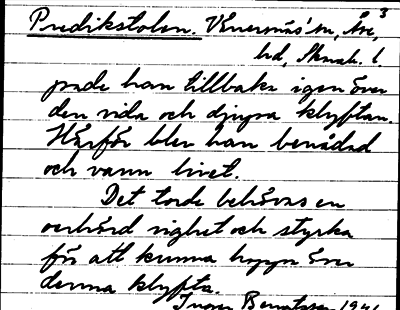 Predikstolen. V. Enermäs'm, Åre, 3
hd, Sknab. l.
pade han tillbaka igen över
den vida och djupa klyftan.
Härför blev han benådad
och vann livet.
Det torde behövas en
oerhörd vighet och styrka
för att kunna hoppa över
denna klyfta.